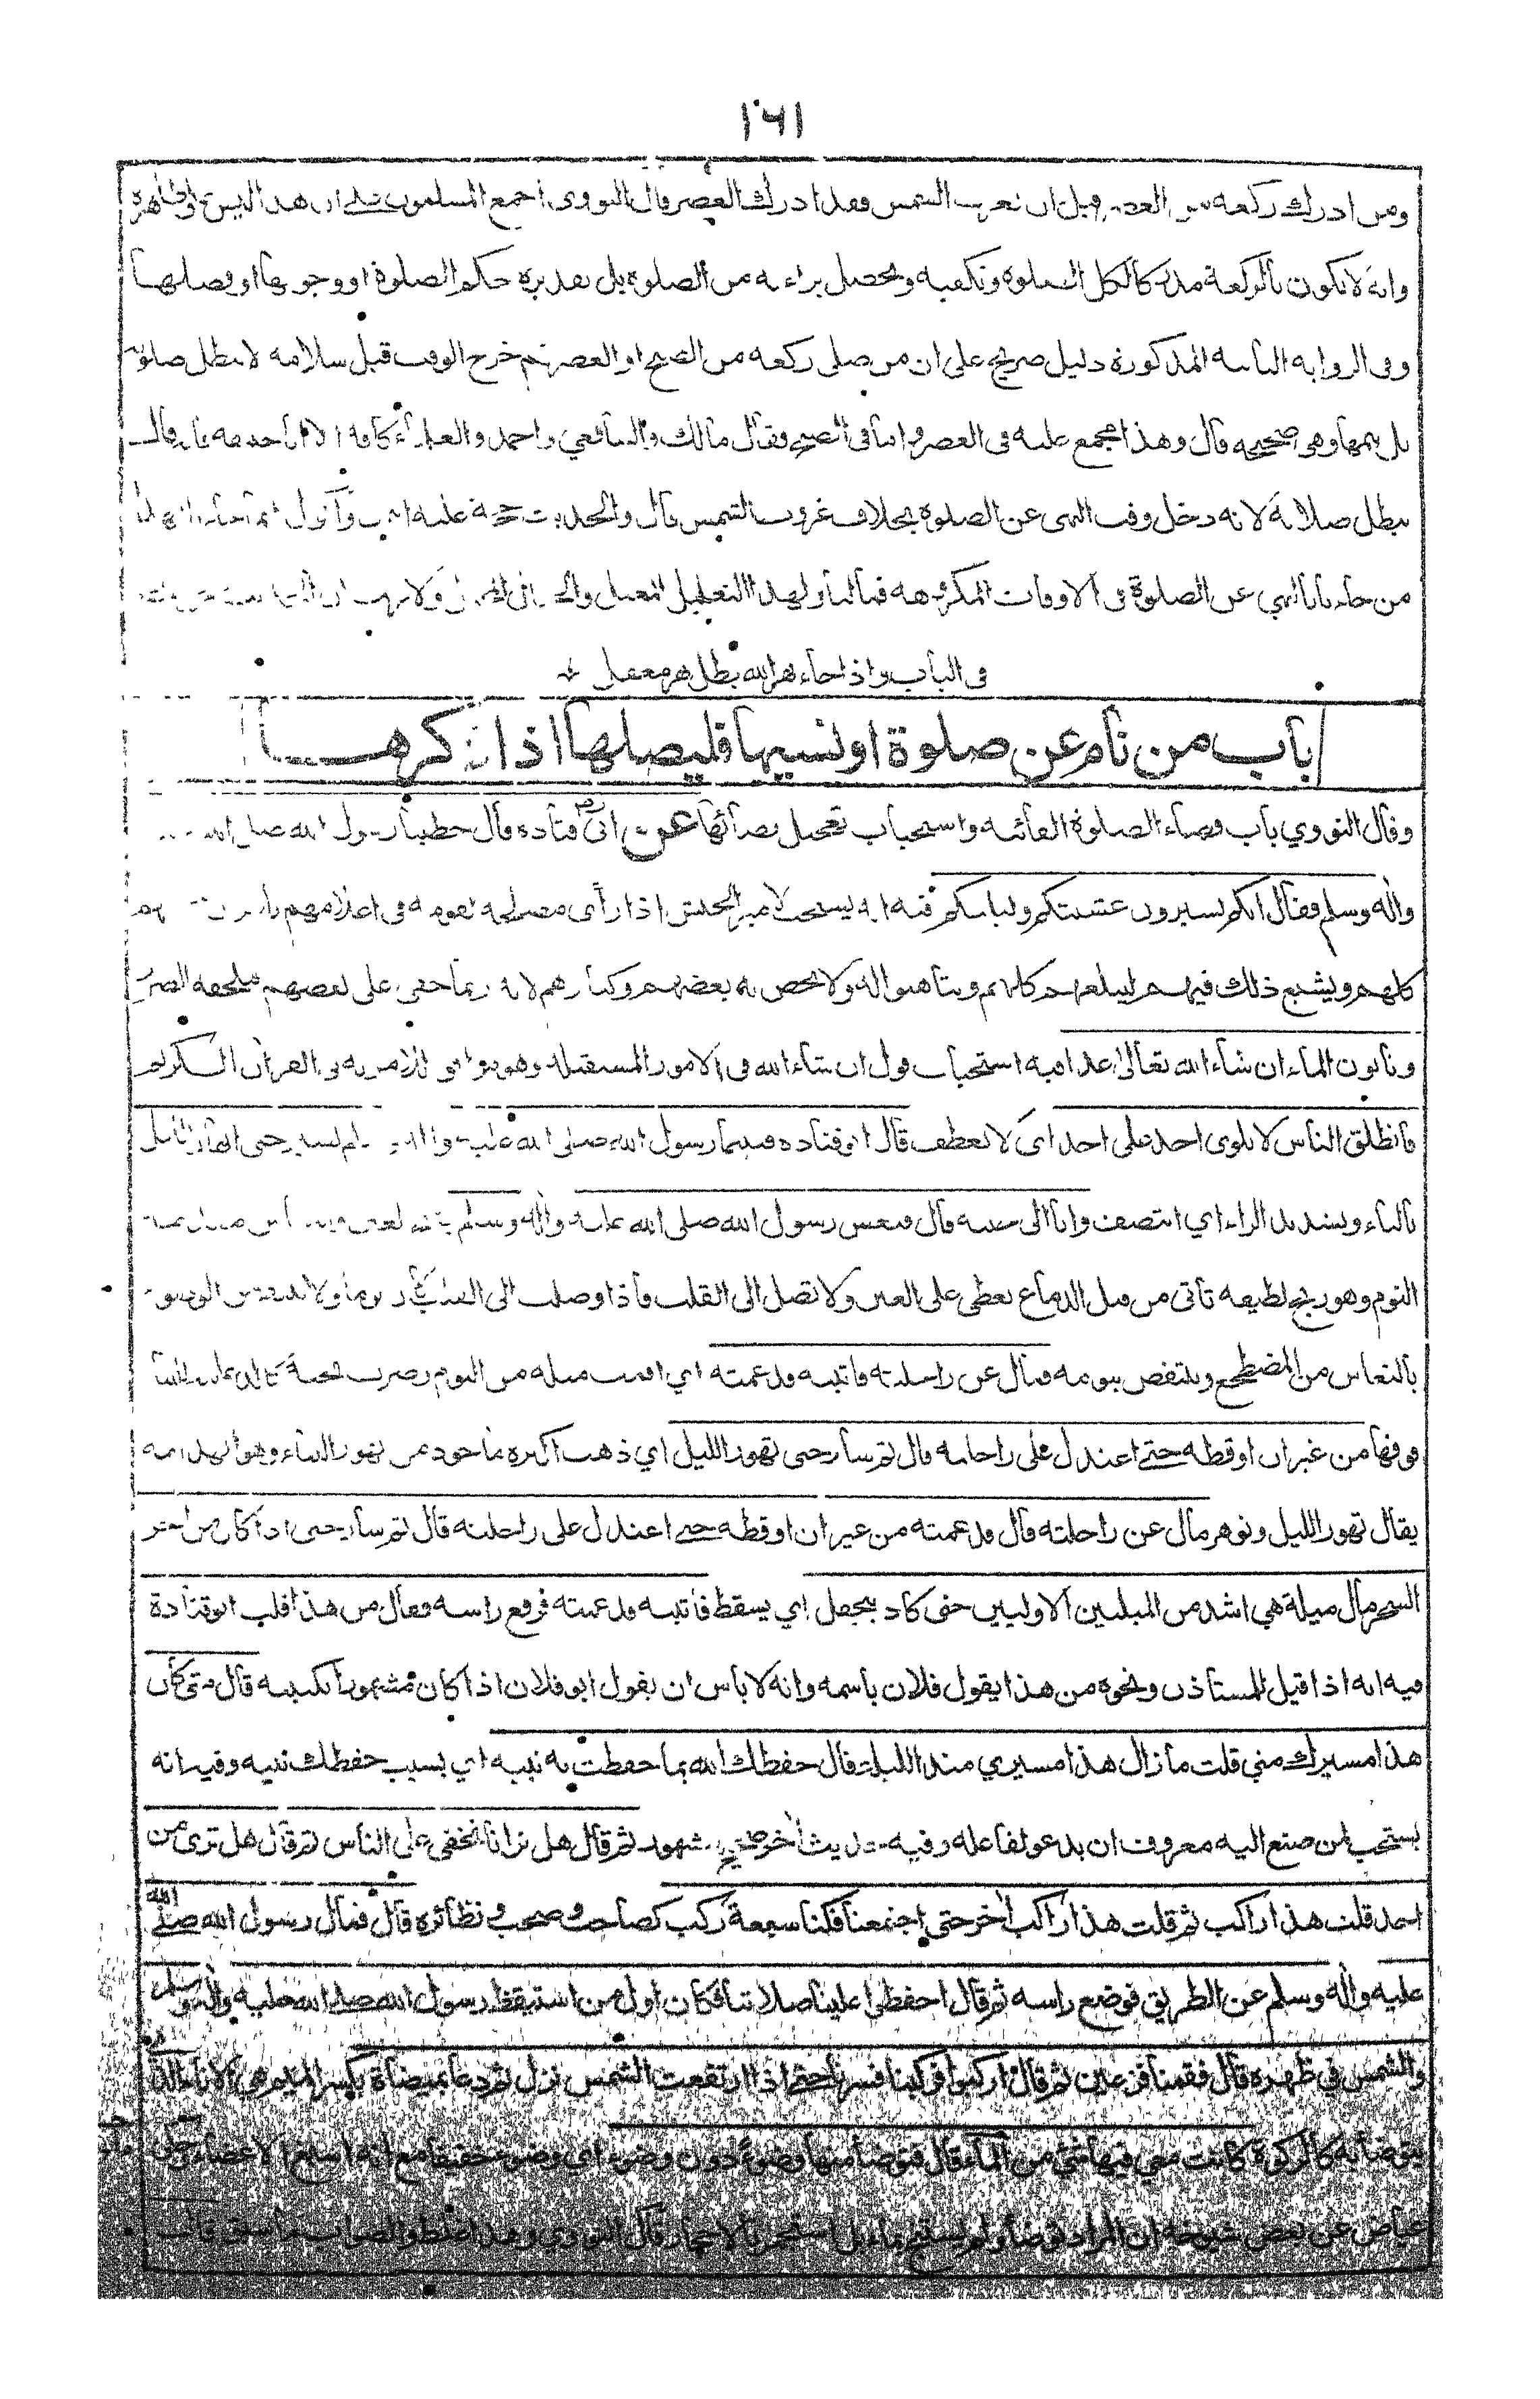 ١٦١
ومن ادرك ركعة من العصر قبل ان تغرب الشمس فقد ادرك العصر قال النووي اجمع المسلمون على ان هذا ليس على ظاهره
وانه لا يكون بالركعة مدركا لكل الصلوة وتكفيه وتحصل براءته من الصلوة بل تقديره حكم الصلوة او وجوبها او فصلها
وفي الرواية الثانية المذكورة دليل صريح على ان من صلى ركعة من الصبح او العصر ثم خرج الوقت قبل سلامه لا تبطل صلوته
بل يتمها وهي صحيحة قال وهذا مجمع عليه في العصر واما في الصبح فقال مالك والشافعي واحمد والعلماء كافة الا ابا حنيفة فانه قال
تبطل صلاته لانه دخل وقت النهي عن الصلوة بخلاف غروب الشمس قال والحديث حجة عليه
من جاءنا بالنهي عن الصلوة في الاوقات المكروهة فما لنا ولهذا التعليل
في الباب واذا جاء نهر الله بطل نهر معقل
باب من نام عن صلوة او نسيها فليصلها اذا ذكرها
وقال النووي باب قضاء الصلوة الفائتة واستحباب تعجيل قضائها عن ابي قتادة قال خطبنا رسول الله صلى الله
واله وسلم فقال انكم تسيرون عشيتكم وليلتكم فيه انه يستحب لامير الجيش اذا رأى مصلحة لقومه في اعلامهم
كلهم ويشيع ذلك فيهم ليبلغهم كلهم ويتأهبوا له ولا يخص به بعضهم وكبارهم لانه ربما خفي على بعضهم فيلحقه الضرر
وتأتون الماء ان شاء الله تعالى غدا فيه استحباب قول ان شاء الله في الامور المستقبلة وهو موافق للامر به في القران الكريم
فانطلق الناس لا يلوي احد على احد اي لا يعطف قال ابو قتادة فبينما رسول الله صلى الله عليه واله وسلم يسير حتى ابهار الليل
بالباء وتشديد الراء اي انتصف وانا الى جنبه قال فنعس رسول الله صلى الله عليه واله وسلم
النوم وهو ريح لطيفة تأتي من قبل الدماغ تغطي على العين ولا تصل الى القلب فاذا وصلت الى القلب
بالنعاس من المضطجع وينتقض بنومه فمال عن راحلته فاتيته فدعمته اي اقمت ميله من النوم وصرت تحته كالدعامة للبناء
فوقها من غير ان اوقظه حتى اعتدل على راحلته قال ثم سار حتى تهور الليل اي ذهب اكثره ماخوذ من تهور البناء وهو انهدامه
يقال تهور الليل وتوهر مال عن راحلته قال فدعمته من غير ان اوقظه حتى اعتدل على راحلته قال ثم سار حتى اذا كان من اخر
السحر مال ميلة هي اشد من الميلتين الاوليين حتى كاد ينجفل اي يسقط فاتيته فدعمته فرفع راسه فقال من هذا قلت ابو قتادة
فيه انه اذا قيل للمستأذن ونحوه من هذا يقول فلان باسمه وانه لا بأس ان يقول ابو فلان اذا كان مشهورا بكنيته قال متى كان
هذا مسيرك مني قلت ما زال هذا مسيري منذ الليلة قال حفظك الله بما حفظت به نبيه اي بسبب حفظك نبيه وفيه انه
يستحب لمن صنع اليه معروف ان يدعو لفاعله وفيه حديث اخر صحيح مشهور ثم قال هل ترانا نخفى على الناس ثم قال هل ترى من
احد قلت هذا راكب ثم قلت هذا راكب اخر حتى اجتمعنا فكنا سبعة ركب كصاحب وصحب ونظائره قال فمال رسول الله صلى الله
عليه واله وسلم عن الطريق فوضع راسه ثم قال احفظوا علينا صلاتنا فكان اول من استيقظ رسول الله صلى الله عليه واله وسلم
والشمس في ظهره قال فقمنا فزعين ثم قال اركبوا فركبنا فسرنا حتى اذا ارتفعت الشمس نزل ثم دعا بميضاة بكسر الميم هي الاناء الذي
يتوضأ به كالركوة كانت معي فيها شيء من الماء قال فتوضأ منها وضوءا دون وضوء اي وضوء خفيفا مع انه اسبغ الاعضاء
عياض عن بعض شيوخه ان المراد توضأ ولم يستنج بماء بل استجمر بالاحجار قال النووي وهذا غلط والصواب ما سبق قال